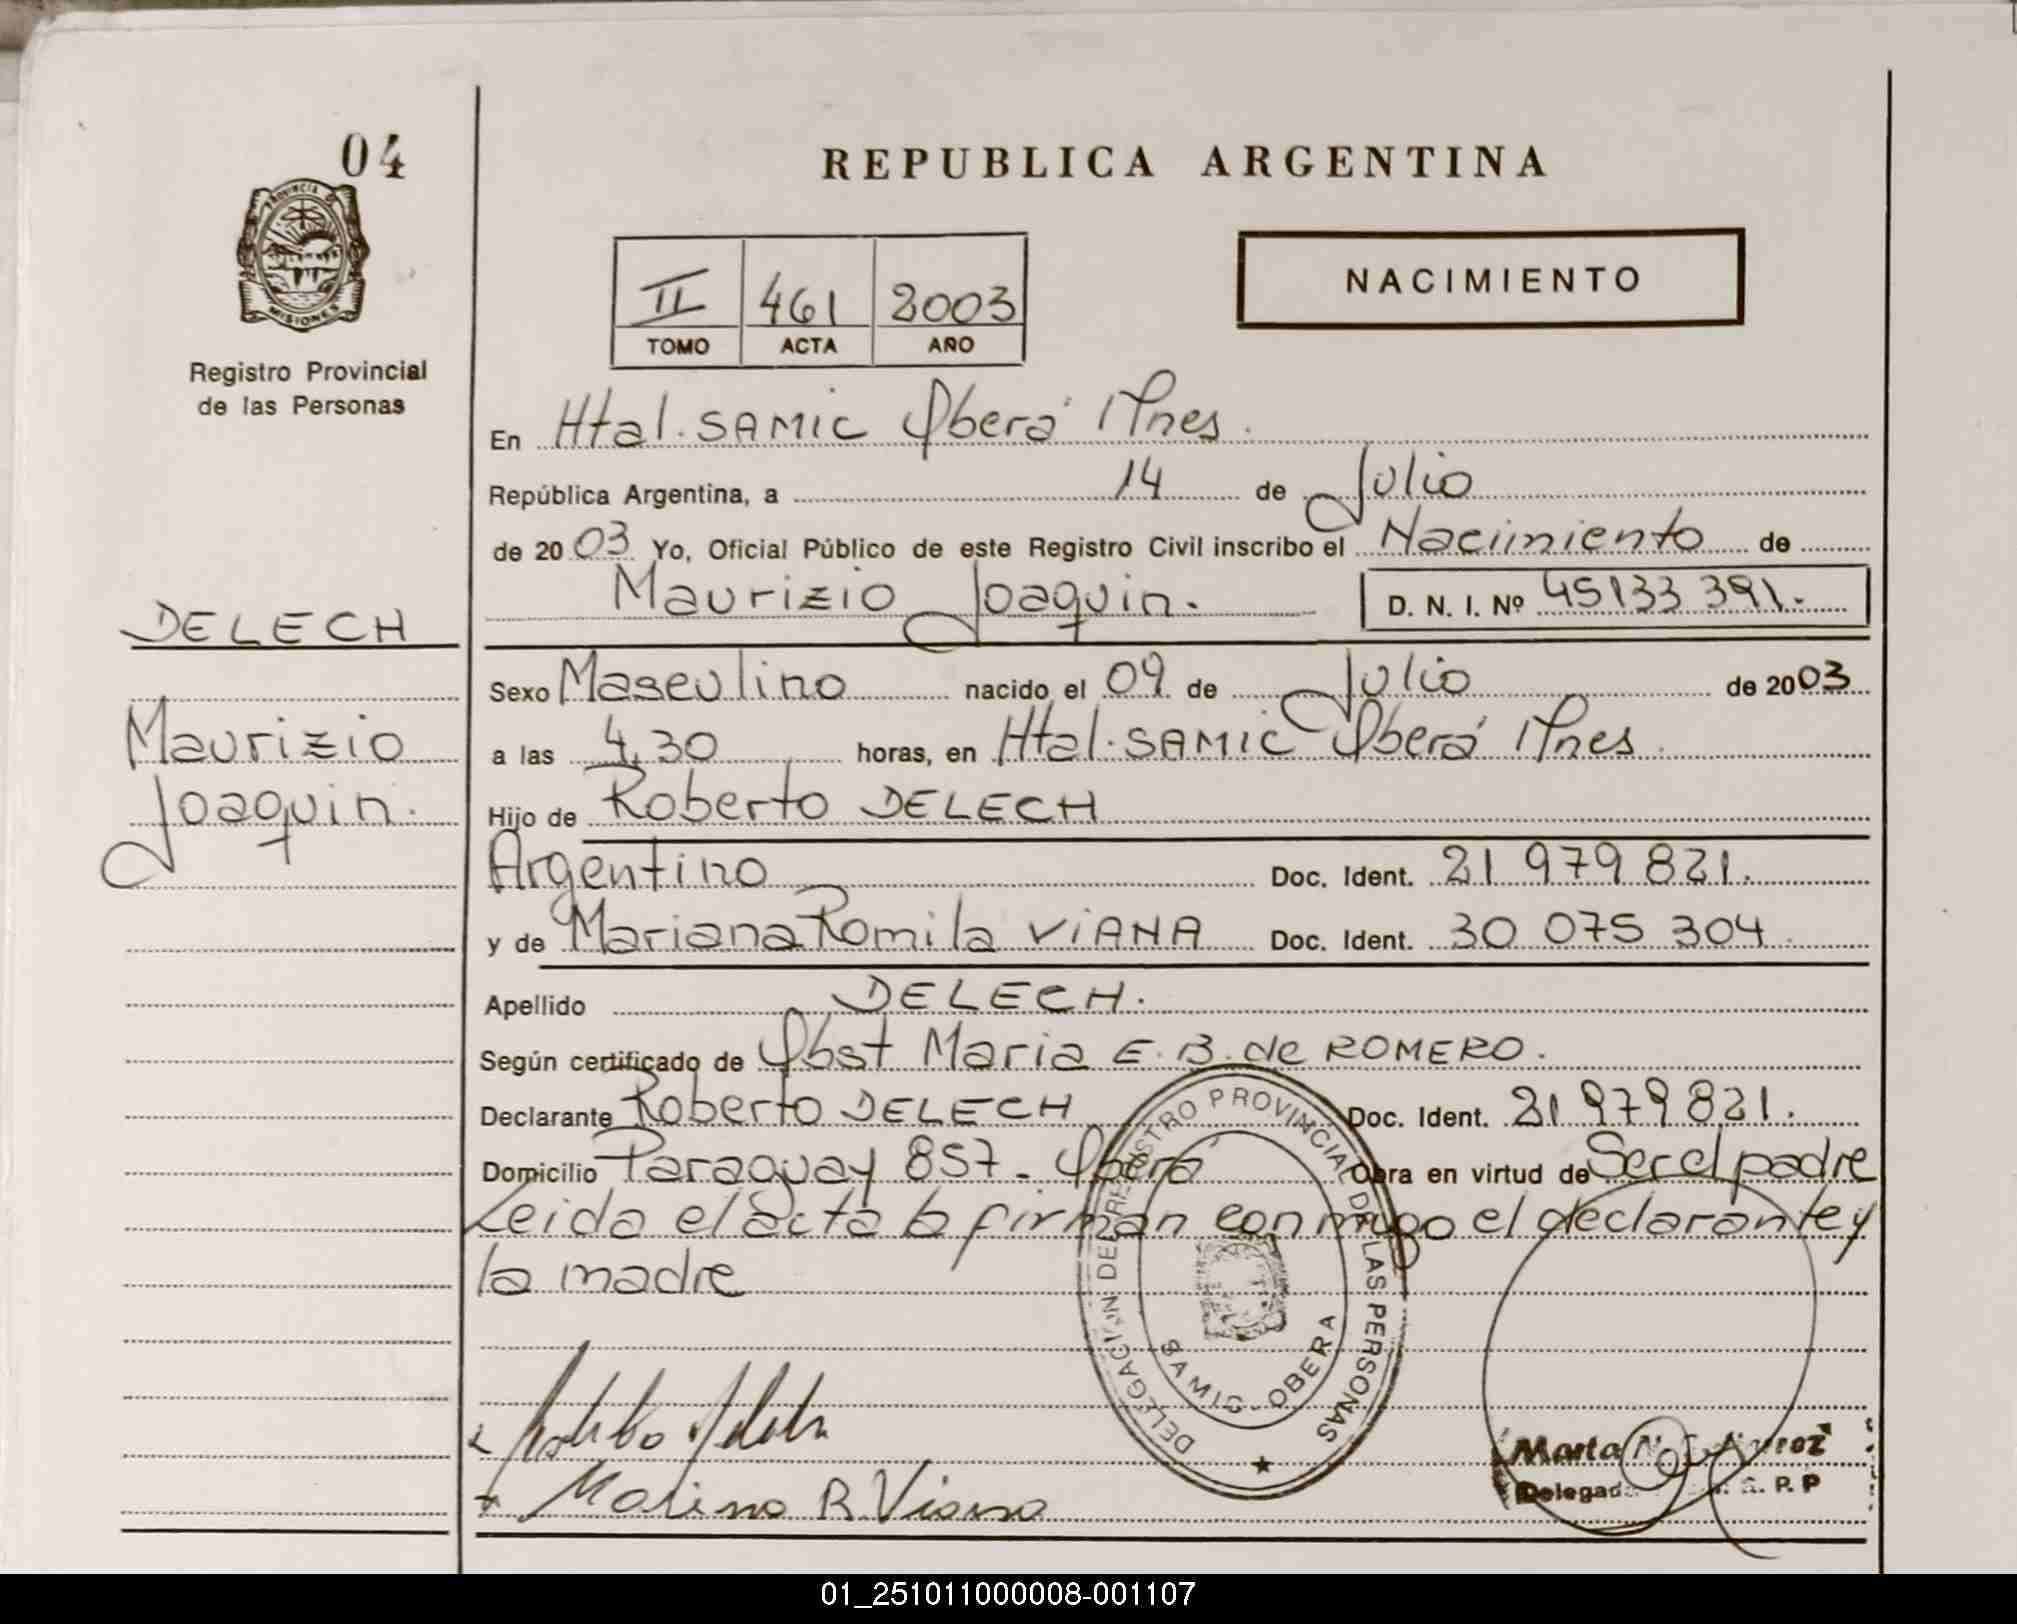 04
PROVINCIA DE
MISIONES
Registro Provincial
de las Personas
DELECH
Maurizio
Joaquin.
REPUBLICA ARGENTINA
II 461 2003
TOMO ACTA AÑO
NACIMIENTO
En Htal. SAMIC Oberá Mnes.
República Argentina, a 14 de Julio
de 2003 Yo, Oficial Público de este Registro Civil inscribo el Nacimiento de
Maurizio Joaquin. D. N. I. Nº 45133 391.-
Sexo Masculino nacido el 09 de Julio de 2003
a las 4,30 horas, en Htal. SAMIC Oberá Mnes.
Hijo de Roberto DELECH
Argentino Doc. Ident. 21 979 821.
y de Mariana Romila VIANA Doc. Ident. 30 075 304
Apellido DELECH.
Según certificado de Obst Maria E. B. de ROMERO.
Declarante Roberto DELECH Doc. Ident. 21 979 821.
Domicilio Paraguay 857 - Oberá Obra en virtud de Ser el padre
Leida el acta la firman conmigo el declarante y
la madre
DELEGACION DEL REGISTRO PROVINCIAL DE LAS PERSONAS
SAMIC - OBERA
R Viana
Marta
Delegad
01_251011000008-001107